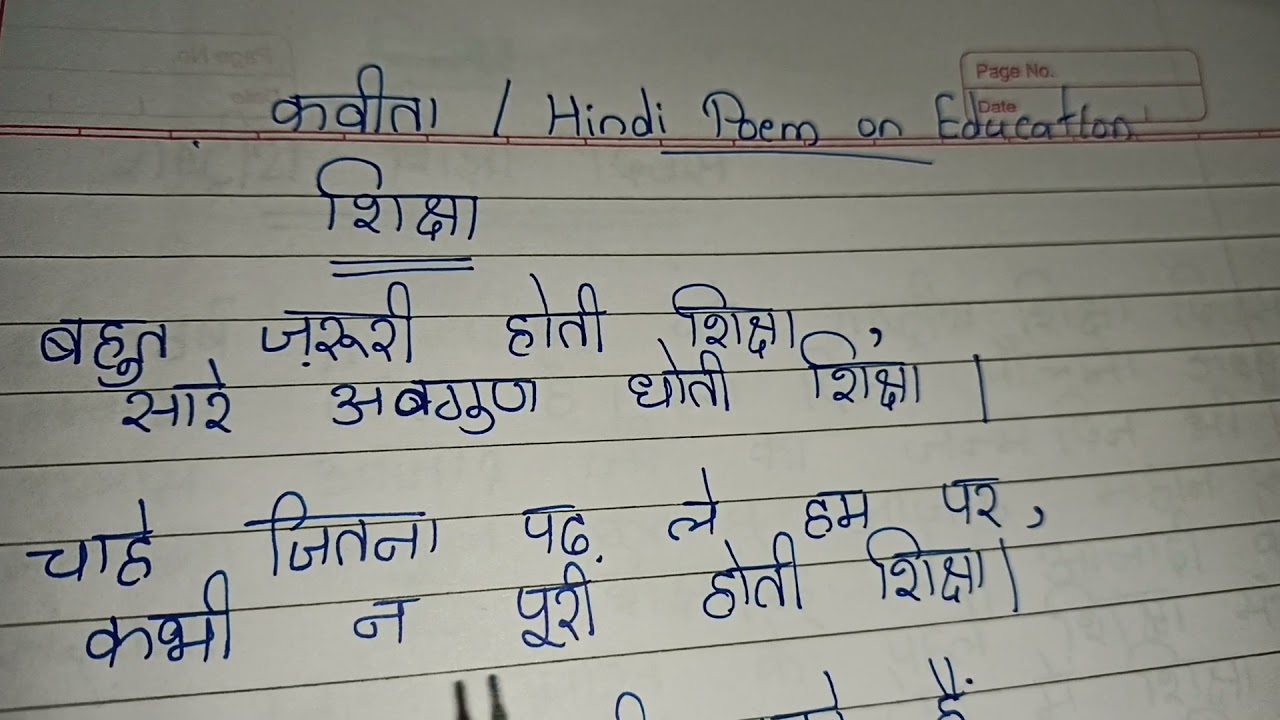 Page No.
Date
कवीता / Hindi Poem on Education
शिक्षा
बहुत ज़रूरी होती शिक्षा,
सारे अबगुण धोती शिक्षा।
चाहे जितना पढ़ ले हम पर,
कभी न पूरी होती शिक्षा।
हैं